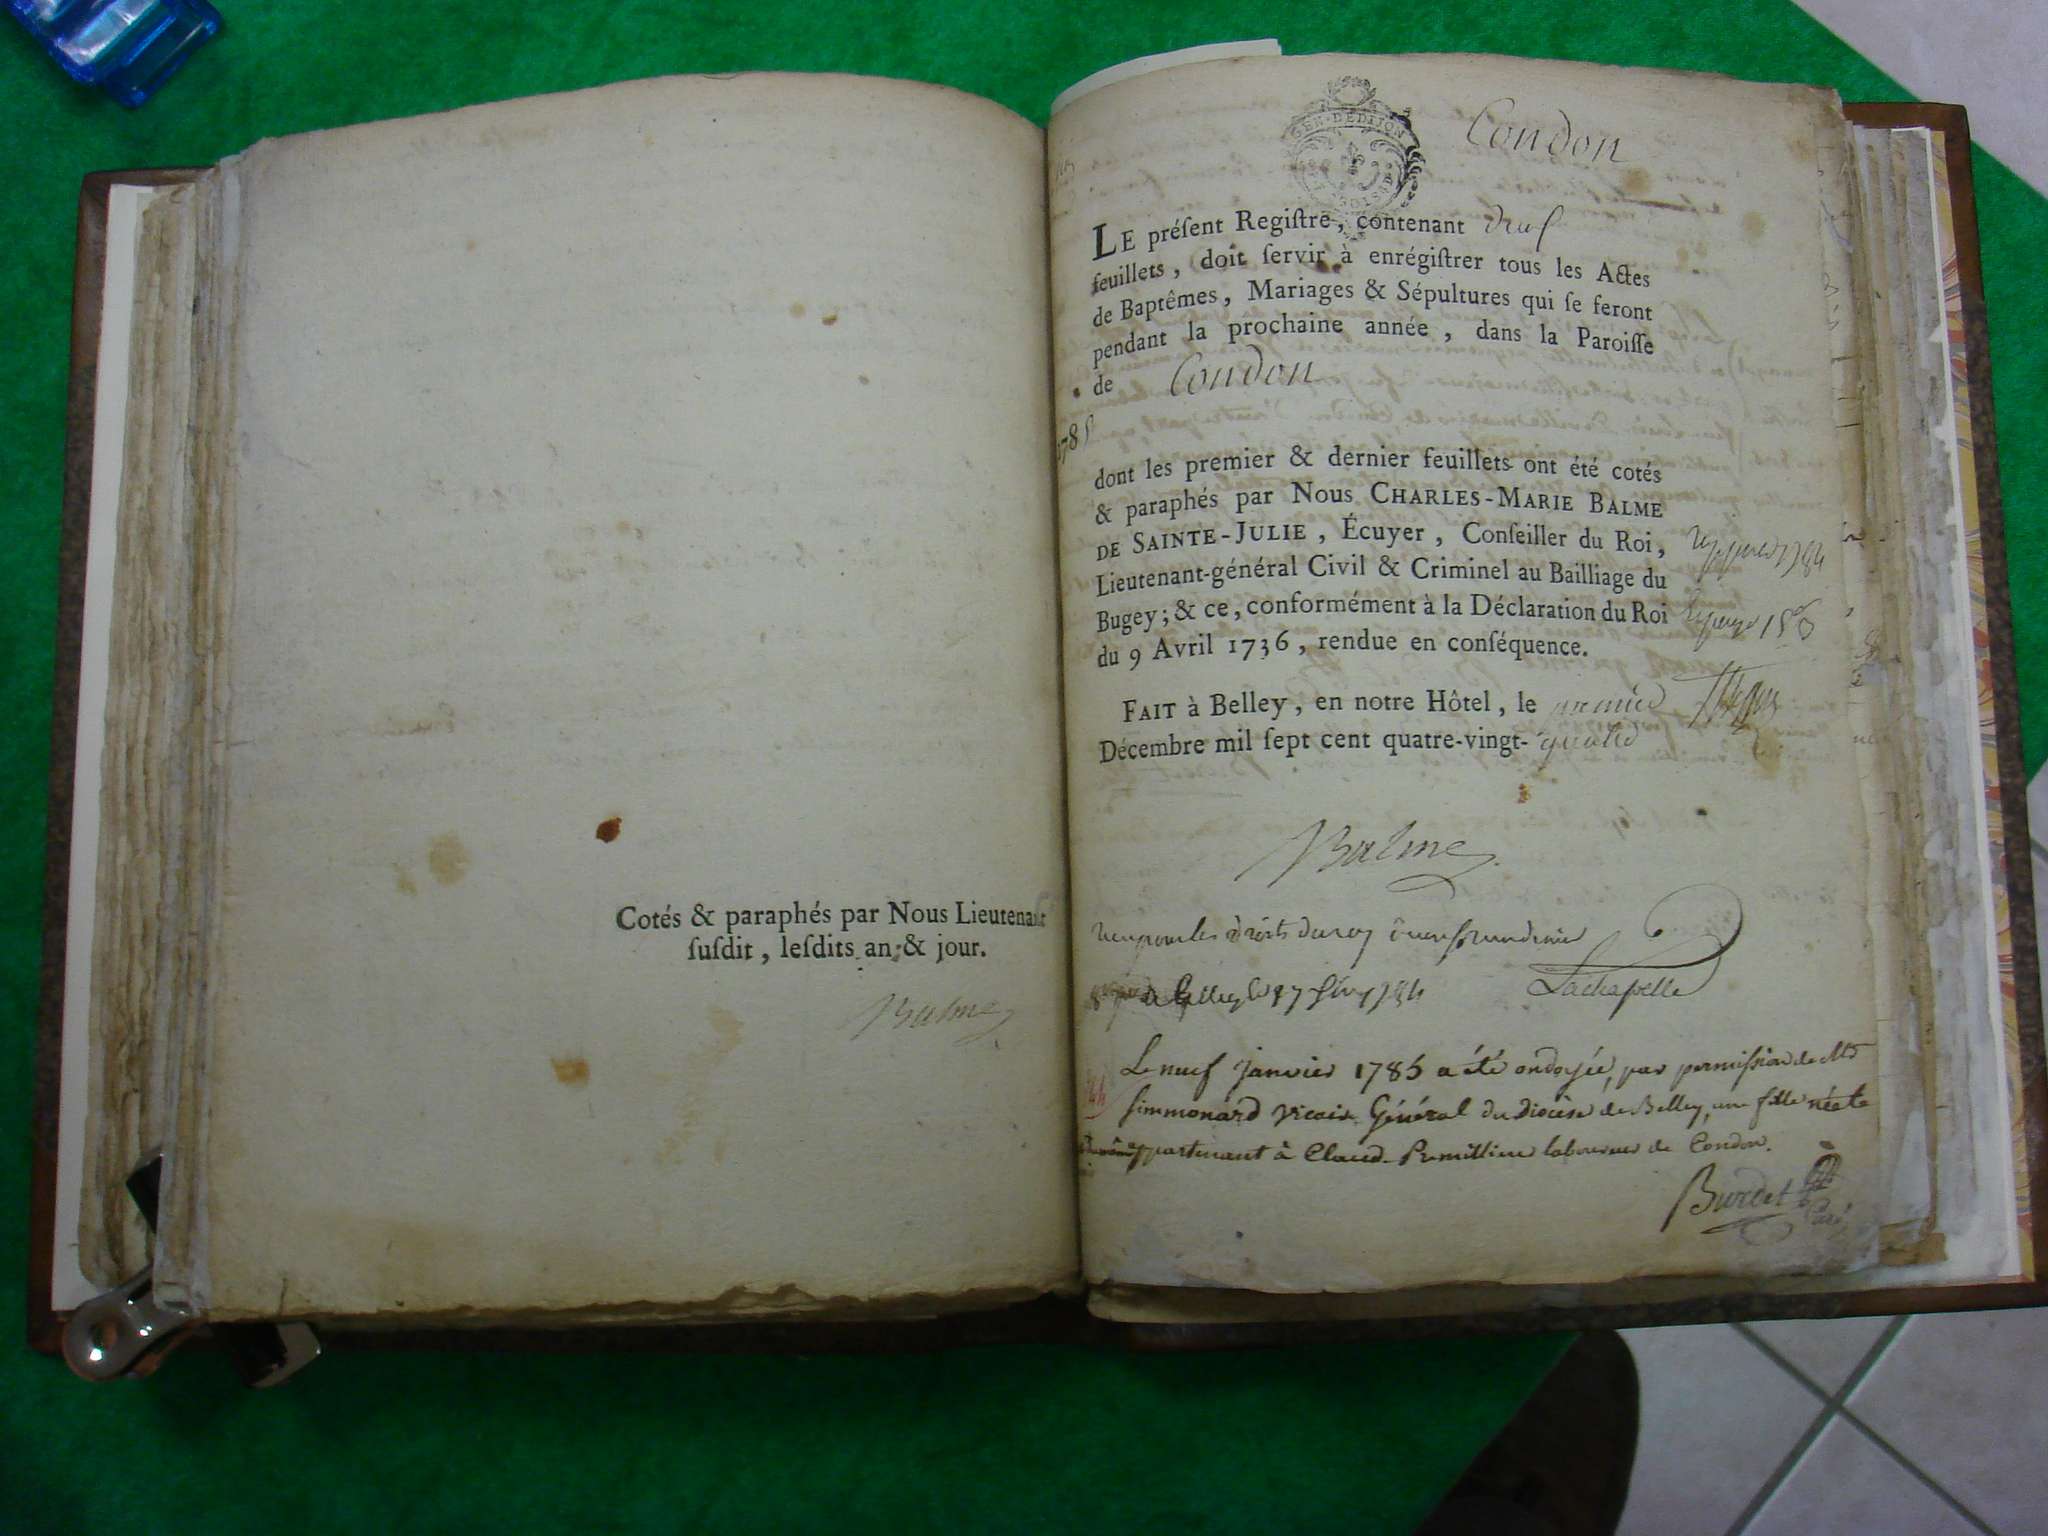 Cotés & paraphés par Nous Lieutenant
ſuſdit, leſdits an & jour.
Balme
GEN. DE DIJON
Condon
LE préſent Regiſtre, contenant
feuillets, doit ſervir à enrégiſtrer tous les Actes
de Baptêmes, Mariages & Sépultures qui ſe feront
pendant la prochaine année, dans la Paroiſſe
de Condon
1785
dont les premier & dernier feuillets ont été cotés
& paraphés par Nous CHARLES-MARIE BALME
DE SAINTE-JULIE, Écuyer, Conſeiller du Roi,
Lieutenant-général Civil & Criminel au Bailliage du
Bugey; & ce, conformément à la Déclaration du Roi
du 9 Avril 1736, rendue en conſéquence.
FAIT à Belley, en notre Hôtel, le premier
Décembre mil ſept cent quatre-vingt-quatre
Balme
Reçu pour les droits du roy
Belley le 17 1784
Lachapelle
Le neuf janvier 1785 a été ondoyée, par permiſſion de Mr
ſimmonard vicaire Général du diocèse de Belley, une fille née le
appartenant à Claud laboureur de Condon.
Burdet Curé